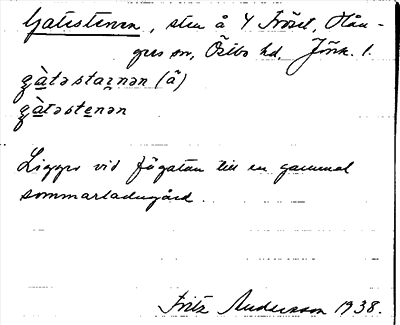 Gatestenen, sten å 4 Fröset, Hån-
gers sn, Östbo hd, Jönk. l.
gàtəstaɪnən (ä)
gàtəstenən
Ligger vid fägatan till en gammal
sommarladugård.
Fritz Andersson 1938.